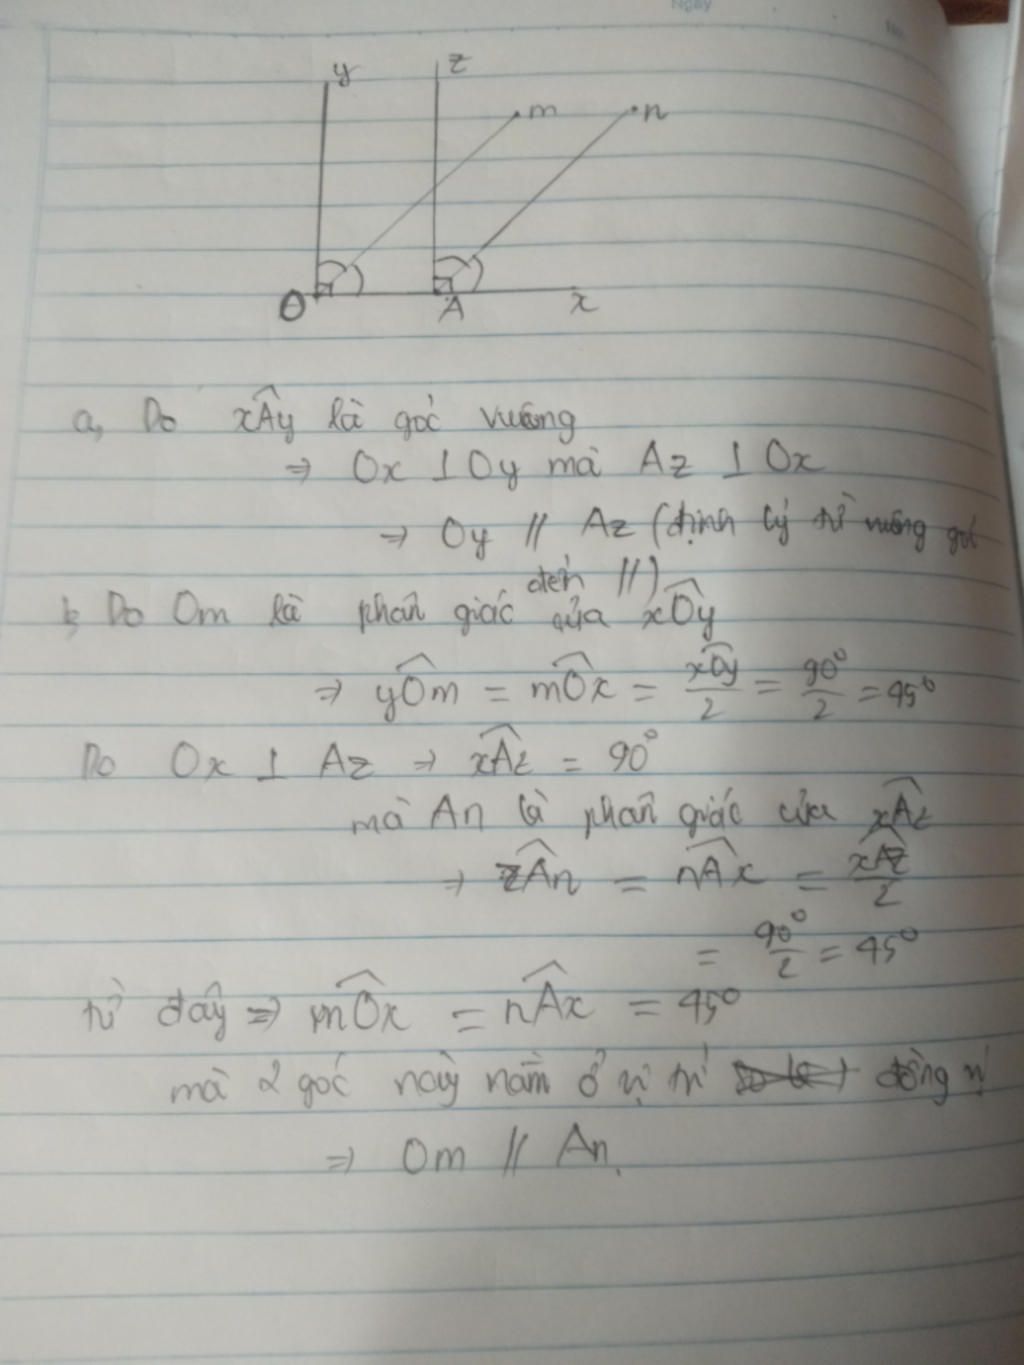 Ngày
No.
y z
m n
O A x
a, Do xÂy là góc vuông
⇒ Ox ⊥ Oy mà Az ⊥ Ox
⇒ Oy // Az (định lý từ vuông góc
đến //)
b, Do Om là phân giác của xÔy
⇒ yÔm = mÔx = xÔy/2 = 90°/2 = 45°
Do Ox ⊥ Az ⇒ xÂz = 90°
mà An là phân giác của xÂz
⇒ zÂn = nÂx = xÂz/2
= 90°/2 = 45°
từ đây ⇒ mÔx = nÂx = 45°
mà 2 góc này nằm ở vị trí đồng vị
⇒ Om // An.